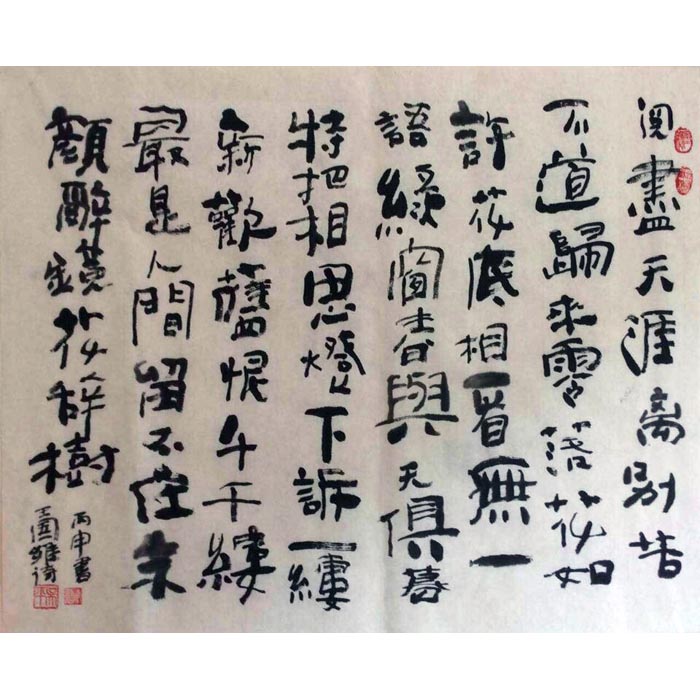 阅盡天涯离别苦
不道歸来零落花如
許花底相看無一
語綠窗春與天俱暮
待把相思燈下訴一縷
新歡舊恨千千縷
最是人間留不住朱
顏辭鏡花辞樹
丙申書
王國維詩